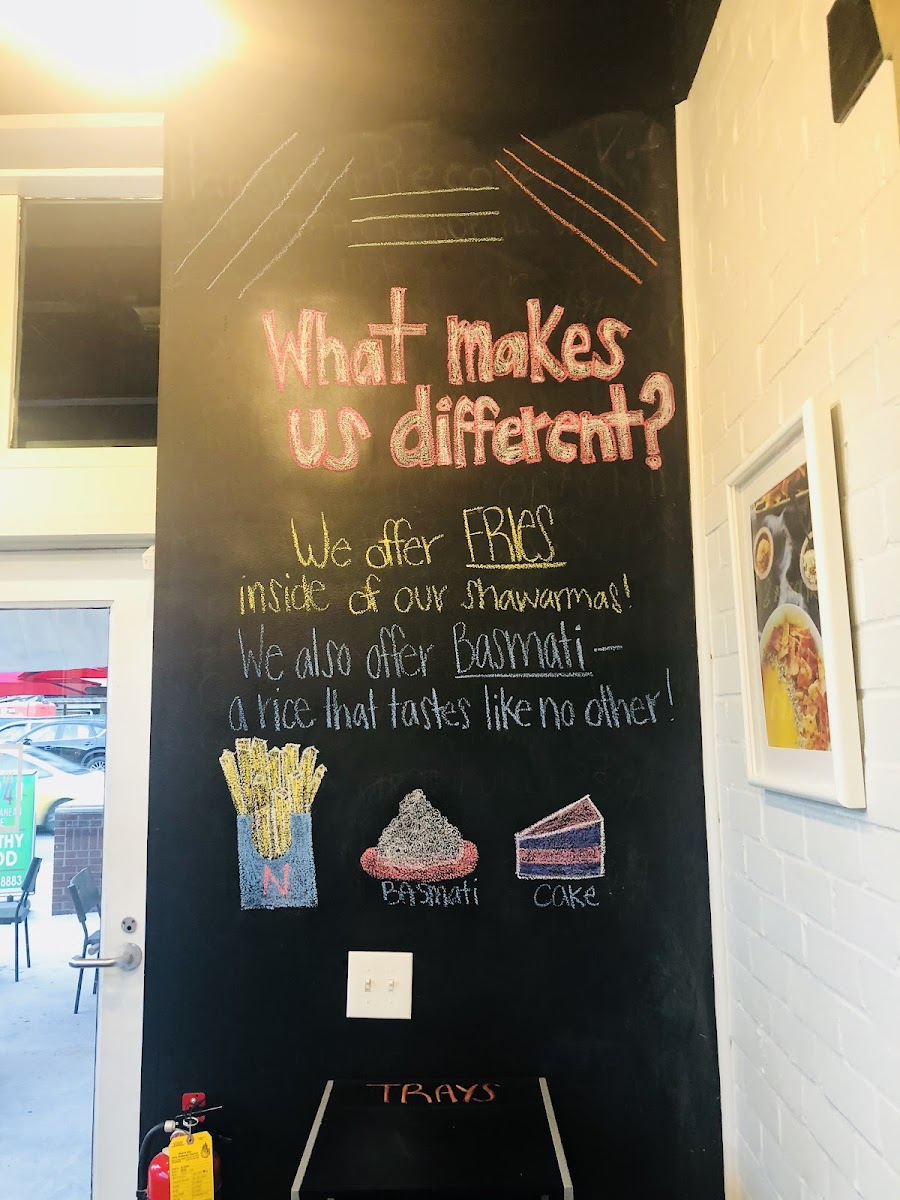 What makes
us different?
We offer FRIES
inside of our shawarmas!
We also offer Basmati—
a rice that tastes like no other!
N
BASmati
cake
TRAYS
4
THY
OD
8883